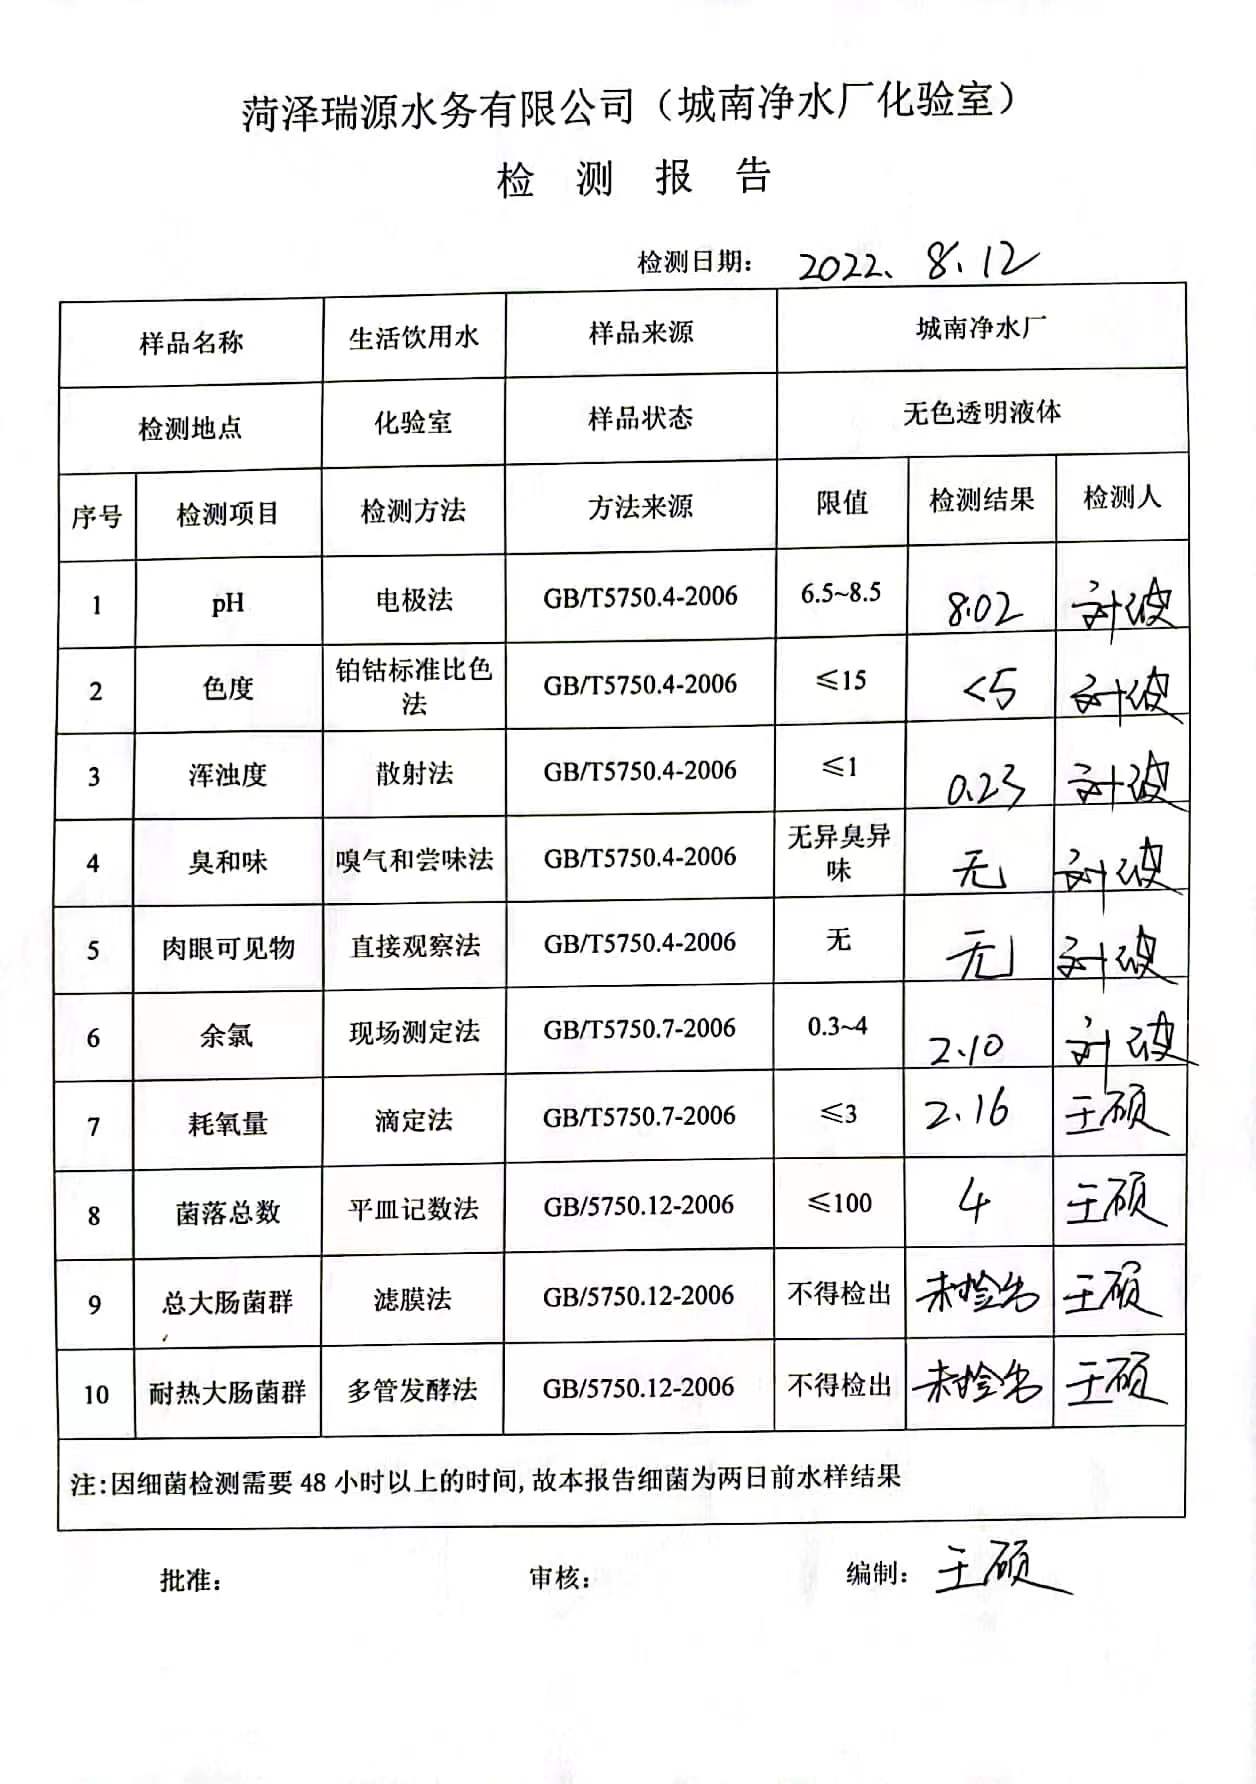 菏泽瑞源水务有限公司（城南净水厂化验室）
检 测 报 告
检测日期： 2022、8、12
样品名称 生活饮用水 样品来源 城南净水厂
检测地点 化验室 样品状态 无色透明液体
序号 检测项目 检测方法 方法来源 限值 检测结果 检测人
1 pH 电极法 GB/T5750.4-2006 6.5~8.5 8.02 刘波
2 色度 铂钴标准比色法 GB/T5750.4-2006 ≤15 <5 刘波
3 浑浊度 散射法 GB/T5750.4-2006 ≤1 0.23 刘波
4 臭和味 嗅气和尝味法 GB/T5750.4-2006 无异臭异味 无 刘波
5 肉眼可见物 直接观察法 GB/T5750.4-2006 无 无 刘波
6 余氯 现场测定法 GB/T5750.7-2006 0.3~4 2.10 刘波
7 耗氧量 滴定法 GB/T5750.7-2006 ≤3 2.16 王硕
8 菌落总数 平皿记数法 GB/5750.12-2006 ≤100 4 王硕
9 总大肠菌群 滤膜法 GB/5750.12-2006 不得检出 未检出 王硕
10 耐热大肠菌群 多管发酵法 GB/5750.12-2006 不得检出 未检出 王硕
注:因细菌检测需要 48 小时以上的时间,故本报告细菌为两日前水样结果
批准： 审核： 编制： 王硕